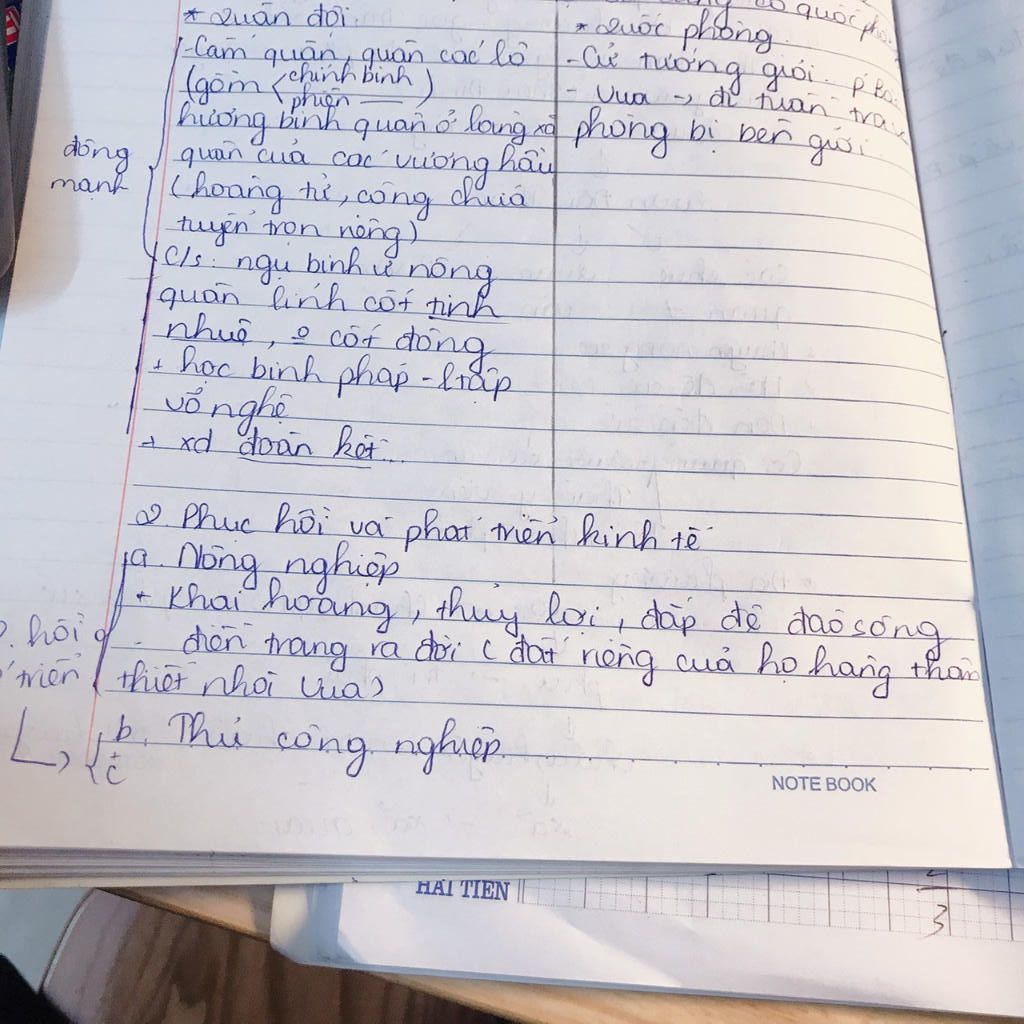 * Quân đội.
-Cấm quân, quân các lộ
(gồm < chính binh
phiên — )
hương binh quân ở làng xã
quân của các vương hầu
(hoàng tử, công chúa
tuyển trọn nông)
C/s: ngụ binh ư nông
quân lính cốt tinh
nhuệ, o cốt đông
+ học binh pháp - ltập
võ nghệ
→ xd đoàn kết...
đông
mạnh
quốc
* Quốc phòng
- Cử tướng giỏi.
- Vua → đi tuần tra
phòng bị biên giới
2. Phục hồi và phát triển kinh tế
a. Nông nghiệp
+ Khai hoang, thủy lợi, đắp đê đào sông
- điền trang ra đời (đất riêng của họ hàng thân
thiết nhơi vua)
hồi
triển
b. Thủ công nghiệp.
+
c
NOTE BOOK
HẢI TIẾN
3